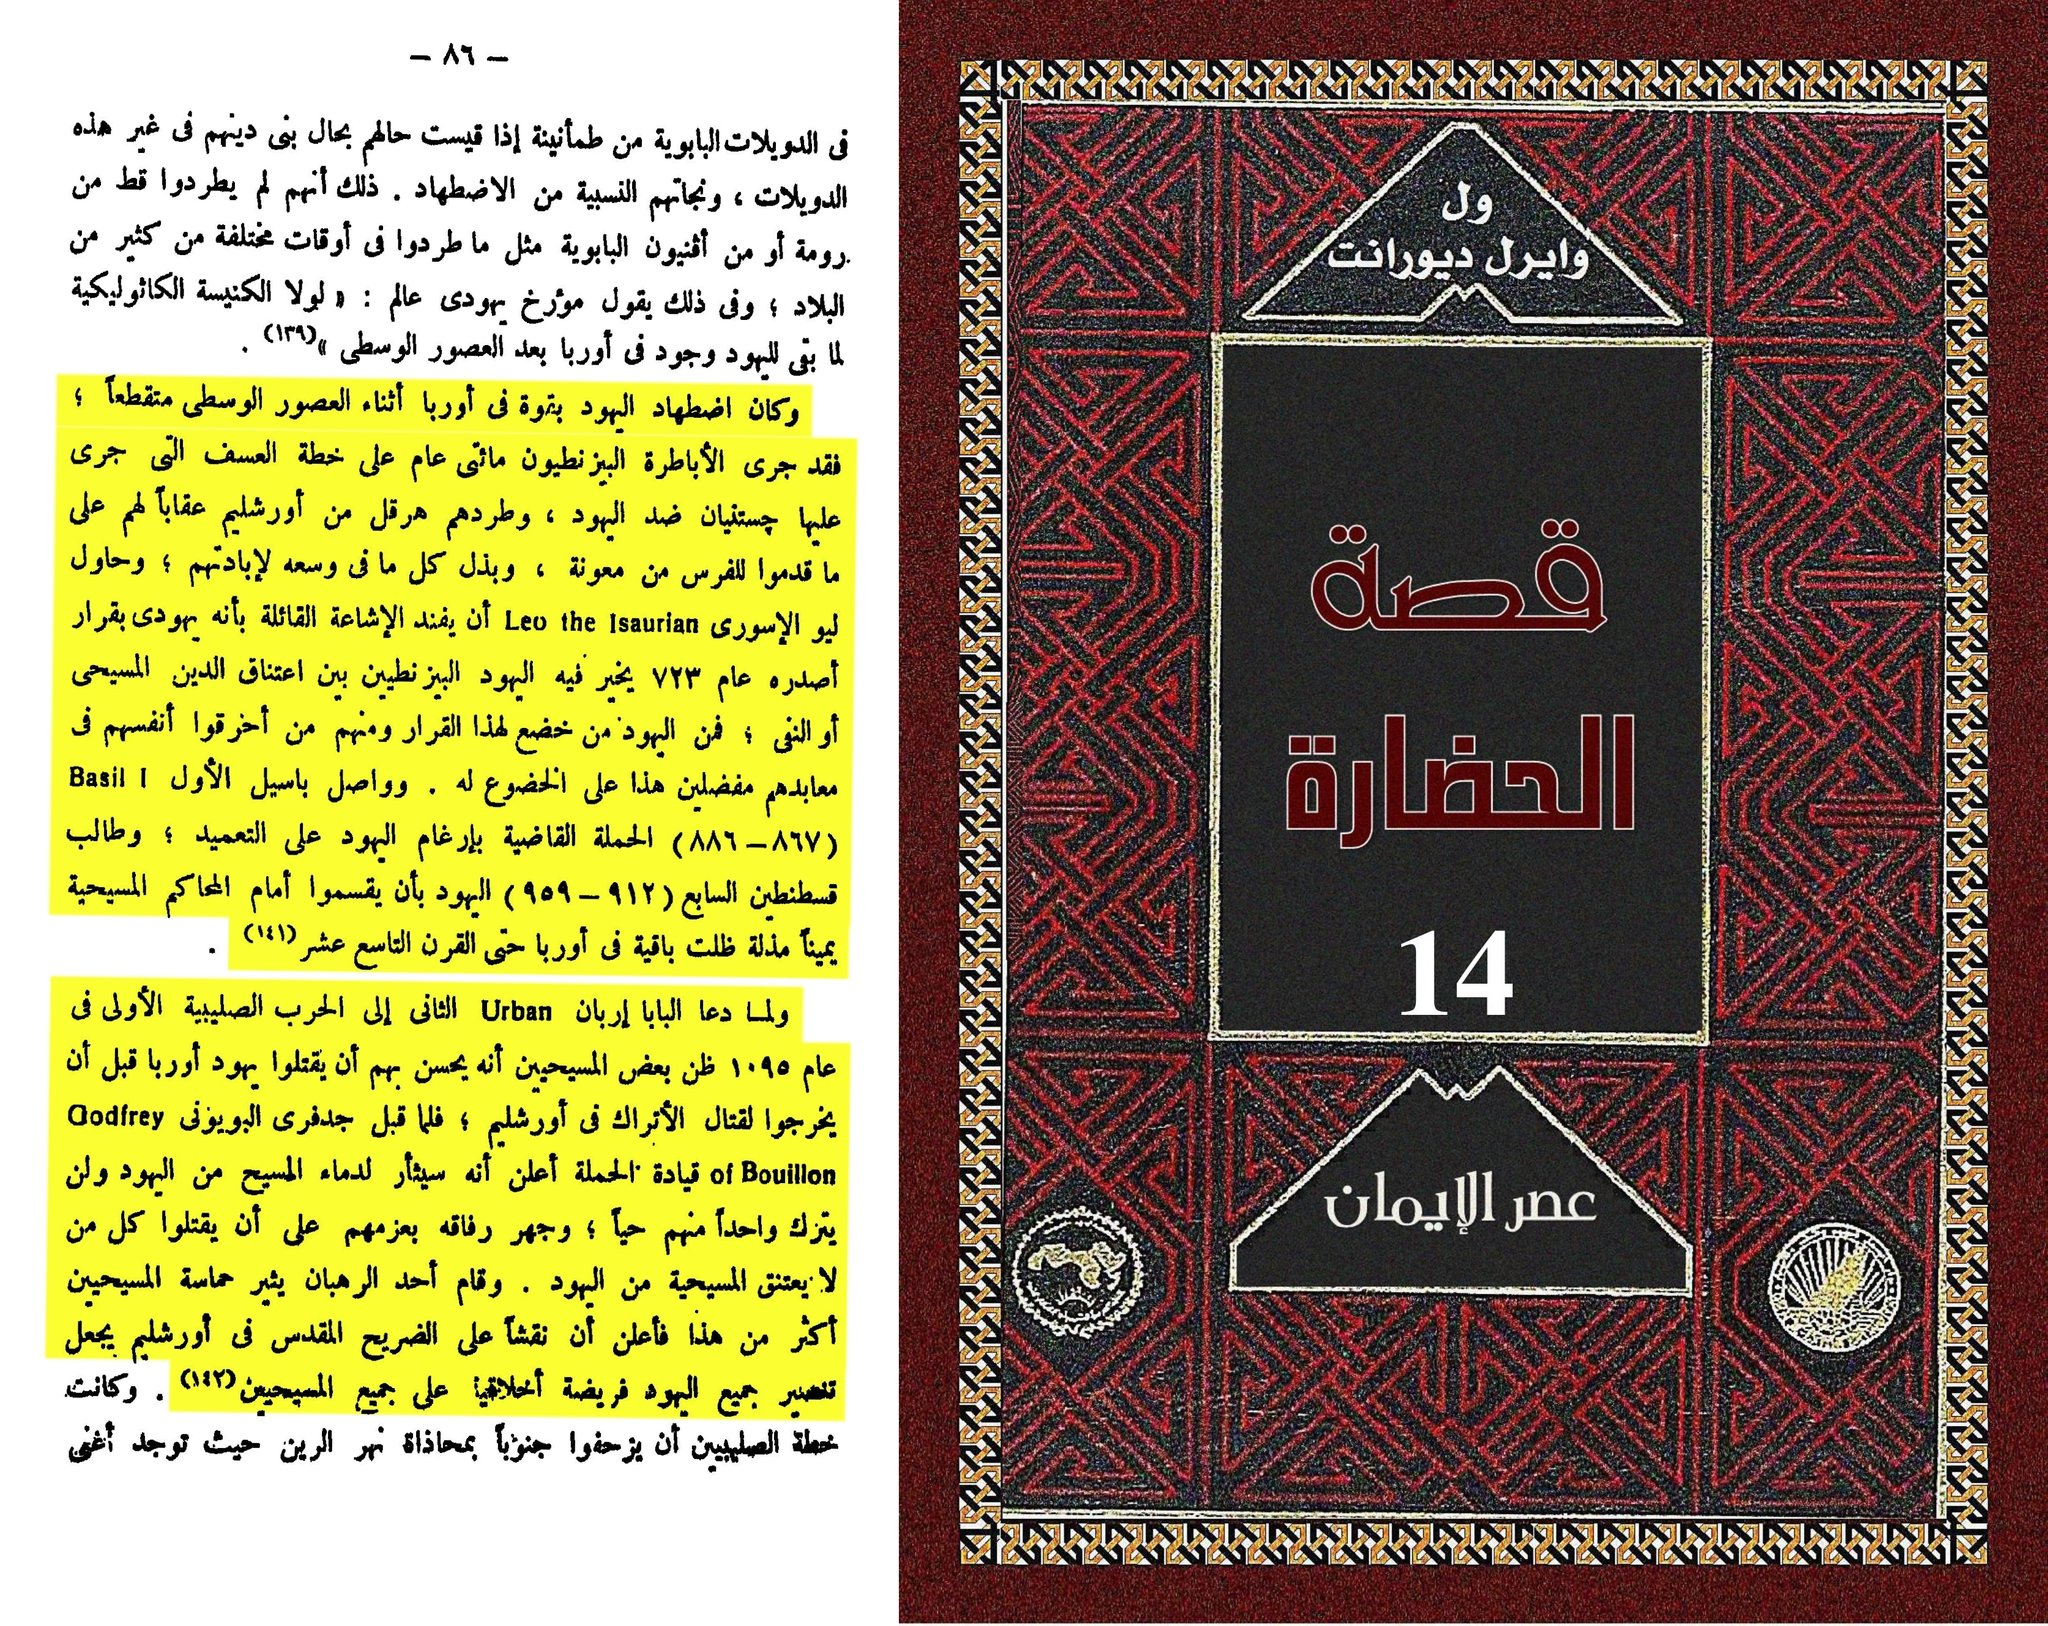 — ٨٦ —
فى الدويلات البابوية من طمأنينة إذا قيست حالهم بحال بنى دينهم فى غير هذه
الدويلات ، ونجاتهم النسبية من الاضطهاد . ذلك أنهم لم يطردوا قط من
رومة أو من أفنيون البابوية مثل ما طردوا فى أوقات مختلفة من كثير من
البلاد ؛ وفى ذلك يقول مؤرخ يهودى عالم : « لولا الكنيسة الكاثوليكية
لما بقى لليهود وجود فى أوربا بعد العصور الوسطى »(١٣٩) .
وكان اضطهاد اليهود بقوة فى أوربا أثناء العصور الوسطى متقطعاً ؛
فقد جرى الأباطرة البيزنطيون مائتى عام على خطة العسف التى جرى
عليها چستنيان ضد اليهود ، وطردهم هرقل من أورشليم عقاباً لهم على
ما قدموا للفرس من معونة ، وبذل كل ما فى وسعه لإبادتهم ؛ وحاول
ليو الإسورى Leo the Isaurian أن يفند الإشاعة القائلة بأنه يهودى بقرار
أصدره عام ٧٢٣ يخير فيه اليهود البيزنطيين بين اعتناق الدين المسيحى
أو النفى ؛ فمن اليهود من خضع لهذا القرار ومنهم من أحرقوا أنفسهم فى
معابدهم مفضلين هذا على الخضوع له . وواصل باسيل الأول Basil I
(٨٦٧ – ٨٨٦) الحملة القاضية بإرغام اليهود على التعميد ؛ وطالب
قسطنطين السابع (٩١٢ – ٩٥٩) اليهود بأن يقسموا أمام المحاكم المسيحية
يميناً مذلة ظلت باقية فى أوربا حتى القرن التاسع عشر(١٤١) .
ولما دعا البابا إربان Urban الثانى إلى الحرب الصليبية الأولى فى
عام ١٠٩٥ ظن بعض المسيحيين أنه يحسن بهم أن يقتلوا يهود أوربا قبل أن
يخرجوا لقتال الأتراك فى أورشليم ؛ فلما قبل جدفرى البويونى Godfrey
of Bouillon قيادة الحملة أعلن أنه سيثأر لدماء المسيح من اليهود ولن
يترك واحداً منهم حياً ؛ وجهر رفاقه بعزمهم على أن يقتلوا كل من
لا يعتنق المسيحية من اليهود . وقام أحد الرهبان يثير حماسة المسيحيين
أكثر من هذا فأعلن أن نقشاً على الضريح المقدس فى أورشليم يجعل
تنصير جميع اليهود فريضة أخلاقية على جميع المسيحيين(١٤٢) . وكانت
خطة الصليبيين أن يزحفوا جنوباً بمحاذاة نهر الرين حيث توجد أغنى
ول
وايرل ديورانت
قصة
الحضارة
14
عصر الإيمان